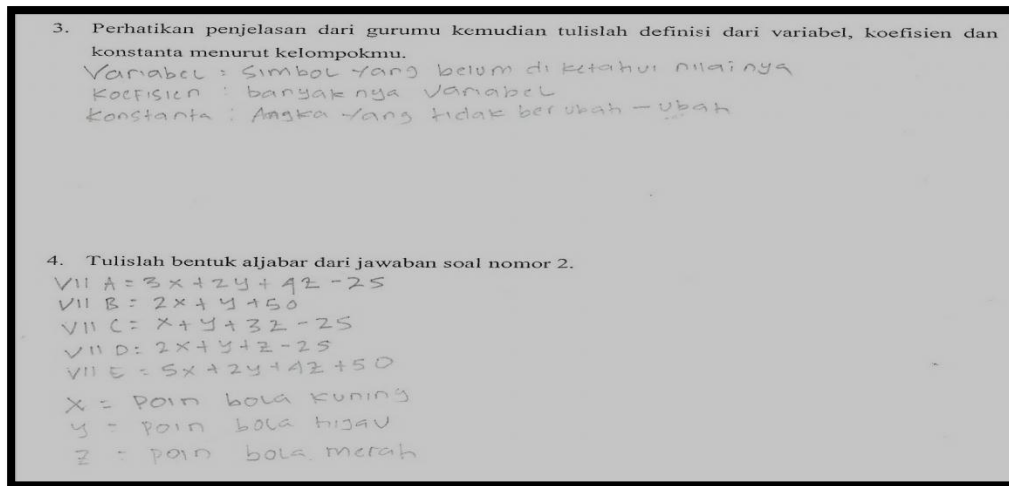 3. Perhatikan penjelasan dari gurumu kemudian tulislah definisi dari variabel, koefisien dan
konstanta menurut kelompokmu.
Variabel : Simbol yang belum di ketahui nilainya
Koefisien : banyak nya variabel
Konstanta : Angka yang tidak ber ubah - ubah
4. Tulislah bentuk aljabar dari jawaban soal nomor 2.
VII A = 3x + 2y + 4z - 25
VII B = 2x + y + 50
VII C = x + y + 3z - 25
VII D = 2x + y + z - 25
VII E = 5x + 2y + 4z + 50
x = Poin bola kuning
y = Poin bola hijau
z = poin bola merah